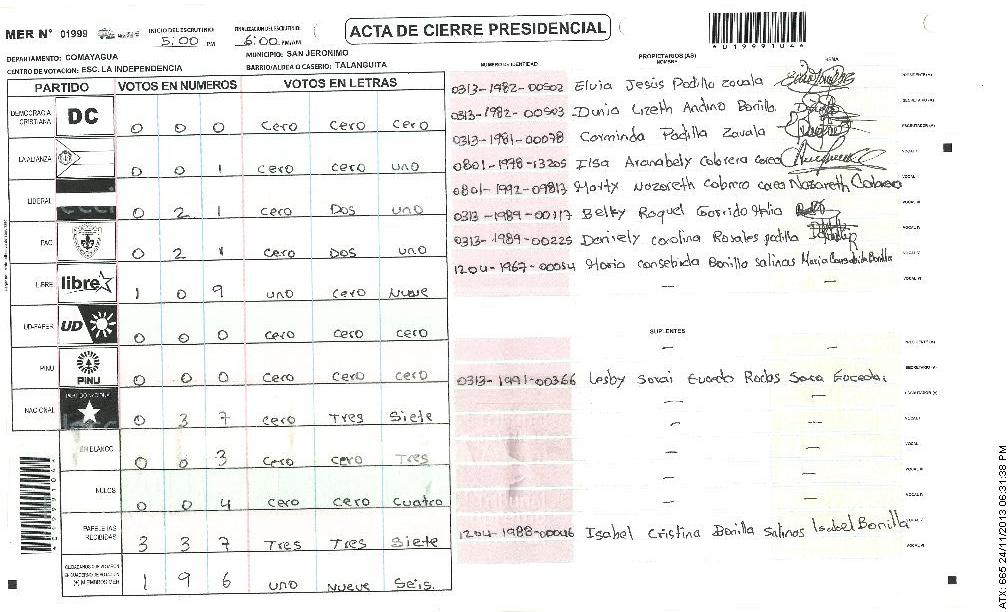 MER N° 01999
INICIO DEL ESCRUTINIO
5:00 PM
FINALIZACION DEL ESCRUTINIO
6:00 PM/AM
ACTA DE CIERRE PRESIDENCIAL
DEPARTAMENTO: COMAYAGUA
MUNICIPIO: SAN JERONIMO
CENTRO DE VOTACION: ESC. LA INDEPENDENCIA
BARRIO/ALDEA O CASERIO: TALANGUITA
PARTIDO VOTOS EN NUMEROS VOTOS EN LETRAS
DEMOCRACIA CRISTIANA DC 0 0 0 Cero Cero Cero
LA ALIANZA 0 0 1 Cero Cero uno
LIBERAL 0 2 1 Cero Dos uno
PAC 0 2 1 Cero Dos uno
LIBRE libre 1 0 9 uno Cero Nueve
UD-FAPER UD 0 0 0 Cero Cero Cero
PINU PINU 0 0 0 Cero Cero Cero
NACIONAL 0 3 7 Cero Tres Siete
EN BLANCO 0 0 3 Cero Cero Tres
NULOS 0 0 4 Cero Cero Cuatro
PAPELETAS RECIBIDAS 3 3 7 Tres Tres Siete
1 9 6 uno Nueve Seis.
NUMERO DE IDENTIDAD
PROPIETARIOS (AS)
NOMBRE
FIRMA
0313-1982-00502 Elvia Jesús Padilla Zavala
0313-1982-00503 Dunia Lizeth Andino Bonilla
0313-1981-00078 Carminda Padilla Zavala
0801-1978-13205 Ilsa Aranabely Cabrera Carea
0801-1992-09813 Nazareth Cabrera Carea Nazareth Cabrera
0313-1989-00117 Belky Raquel Garrido
0313-1989-00225 Daniely Carolina Rosales Padilla
1204-1967-00054 Maria Consebida Bonilla Salinas Maria Consebida Bonilla
SUPLENTES
0313-1991-00366 Lesby Sarai
1204-1988-00046 Isabel Cristina Bonilla Salinas Isabel Bonilla
ATX: 665 24/11/2013 06:31:38 PM